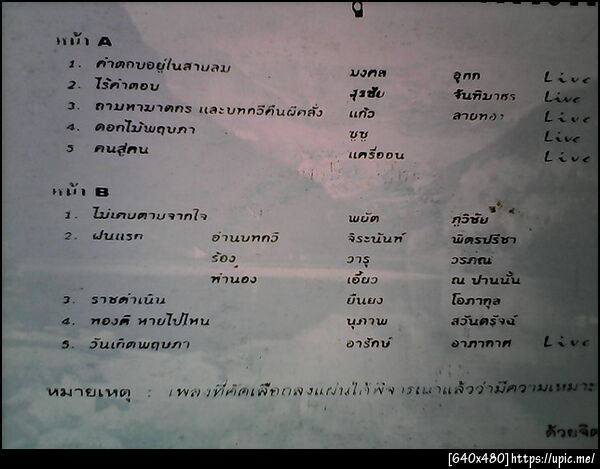 หน้า A
1. คำตอบอยู่ในสายลม มงคล อุทก Live
2. ไร้คำตอบ สุรชัย จันทิมาธร Live
3. ถามหามาตกร และบทกวีคืนผีคลั่ง แก้ว ลายทอง Live
4. ดอกไม้พฤษภา ซูซู Live
5 คนสู่คน แครี่ออน Live
หน้า B
1. ไม่เคยตายจากใจ พยัต ภูวิชัย
2. ฝนแรก อ่านบทกวี จิระนันท์ พิตรปรีชา
ร้อง วารุ วรภณ
ทำนอง เอี้ยว ณ ปานนั้น
3. ราชดำเนิน ยืนยง โอภากุล
4. ทองดี หายไปไหน นุภาพ สวันตรัจฉ์
5. วันเกิดพฤษภา อารักษ์ อาภากาศ Live
หมายเหตุ : เพลงที่คัดเลือกลงแผ่นได้พิจารณาแล้วว่ามีความเหมาะ
ด้วยจิต
[640x480]https://upic.me/